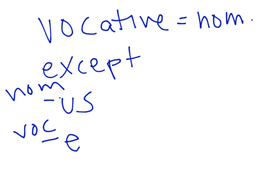 vocative = nom.
except
nom
-us
voc
-e